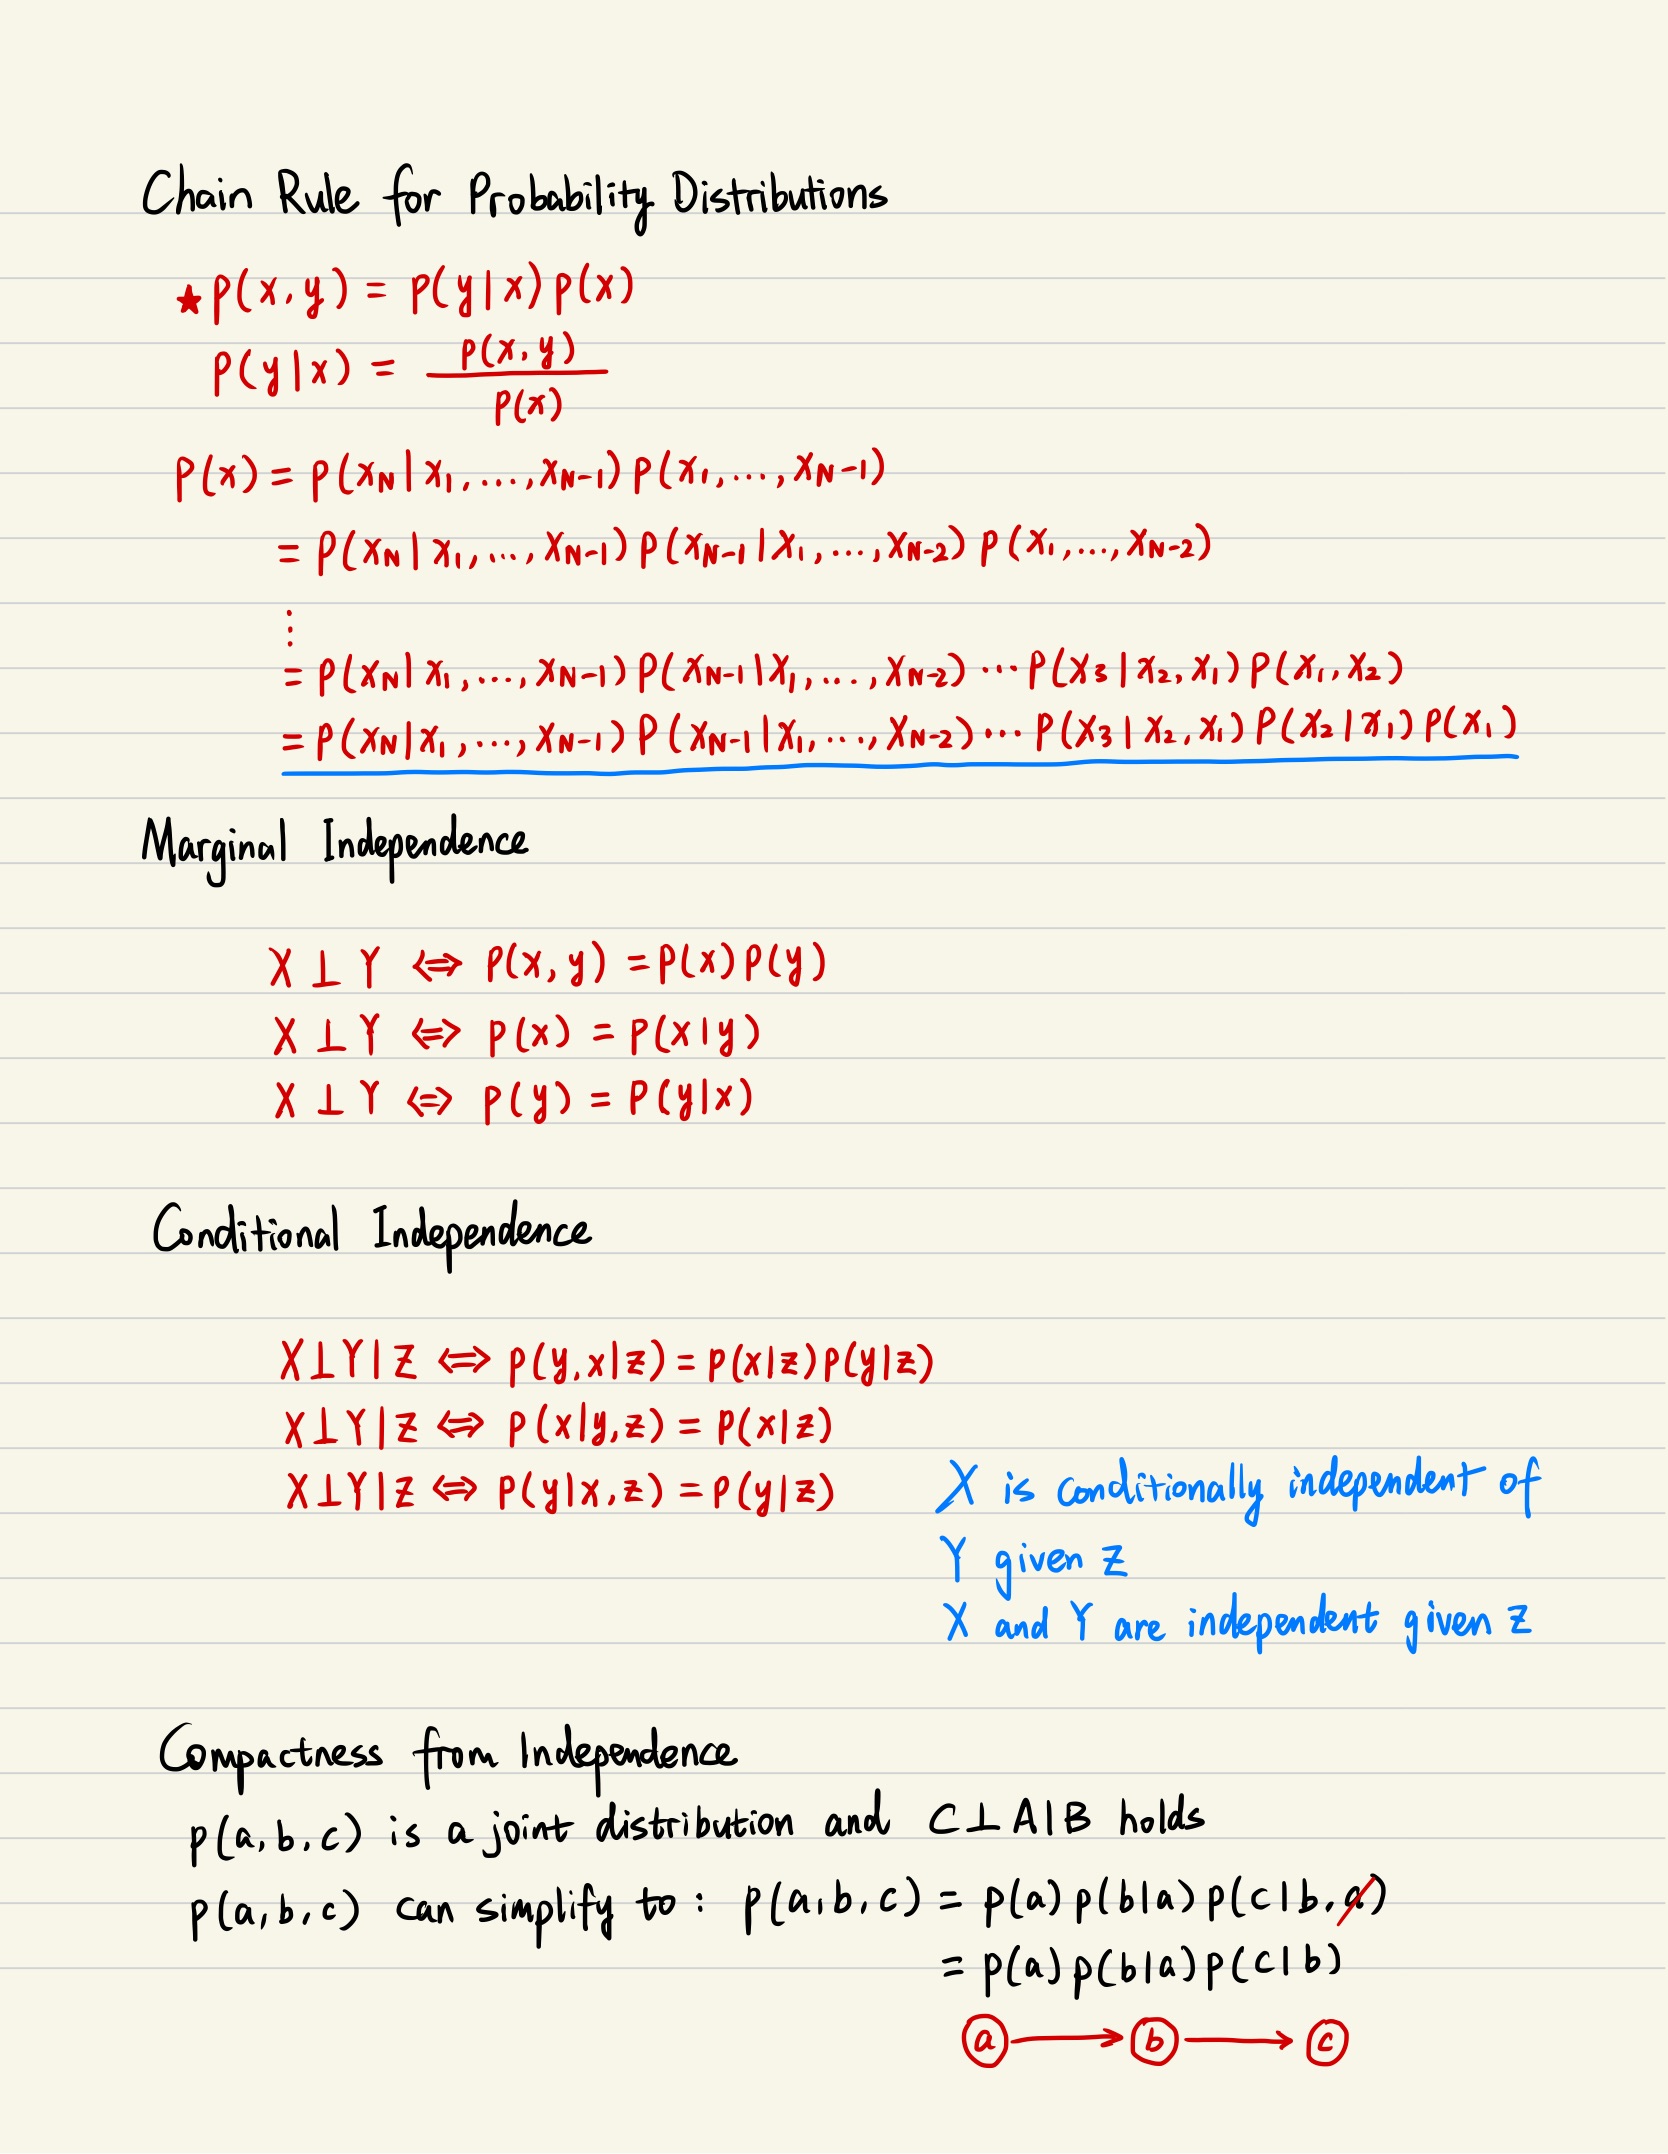 Chain Rule for Probability Distributions
★ p(x,y) = p(y|x) p(x)
p(y|x) = p(x,y) / p(x)
p(x) = p(x_N | x_1, ..., x_{N-1}) p(x_1, ..., x_{N-1})
= p(x_N | x_1, ..., x_{N-1}) p(x_{N-1} | x_1, ..., x_{N-2}) p(x_1, ..., x_{N-2})
⋮
= p(x_N | x_1, ..., x_{N-1}) p(x_{N-1} | x_1, ..., x_{N-2}) ... p(x_3 | x_2, x_1) p(x_1, x_2)
= p(x_N | x_1, ..., x_{N-1}) p(x_{N-1} | x_1, ..., x_{N-2}) ... p(x_3 | x_2, x_1) p(x_2 | x_1) p(x_1)
Marginal Independence
X ⊥ Y ⇔ p(x,y) = p(x) p(y)
X ⊥ Y ⇔ p(x) = p(x|y)
X ⊥ Y ⇔ p(y) = p(y|x)
Conditional Independence
X⊥Y|Z ⇔ p(y,x|z) = p(x|z) p(y|z)
X⊥Y|Z ⇔ p(x|y,z) = p(x|z)
X⊥Y|Z ⇔ p(y|x,z) = p(y|z)
X is conditionally independent of
Y given Z
X and Y are independent given Z
Compactness from Independence
p(a,b,c) is a joint distribution and C⊥A|B holds
p(a,b,c) can simplify to: p(a,b,c) = p(a) p(b|a) p(c|b,a)
= p(a) p(b|a) p(c|b)
a → b → c